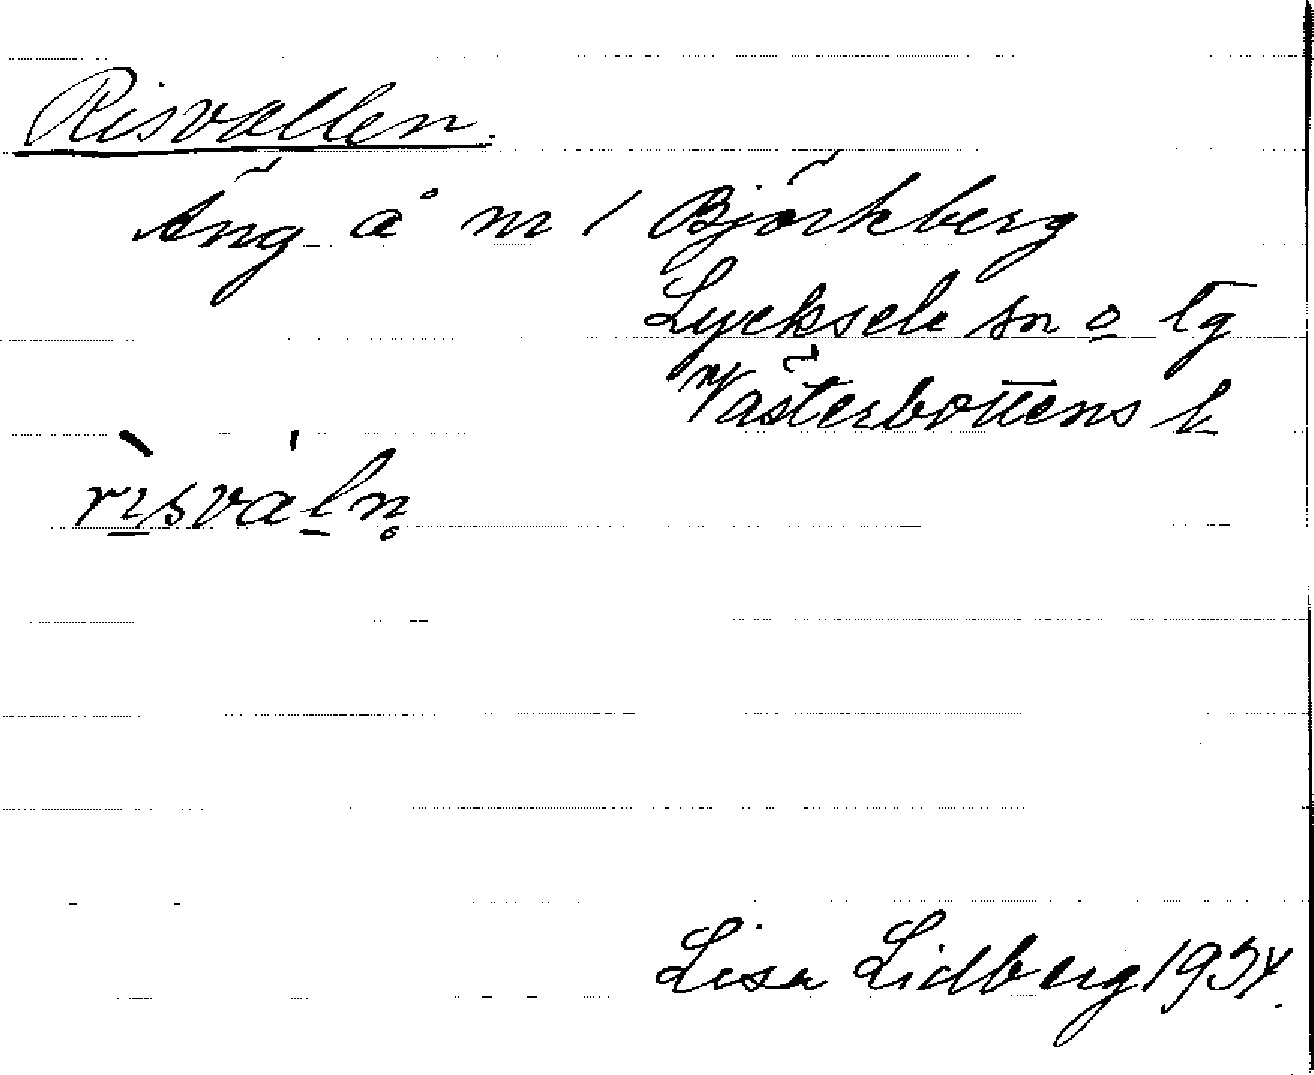 Risvallen.
Äng å nr 1 Björkberg
Lycksele sn o tg
Västerbottens l
rìsvàln̥
Lisa Lidberg 1934.